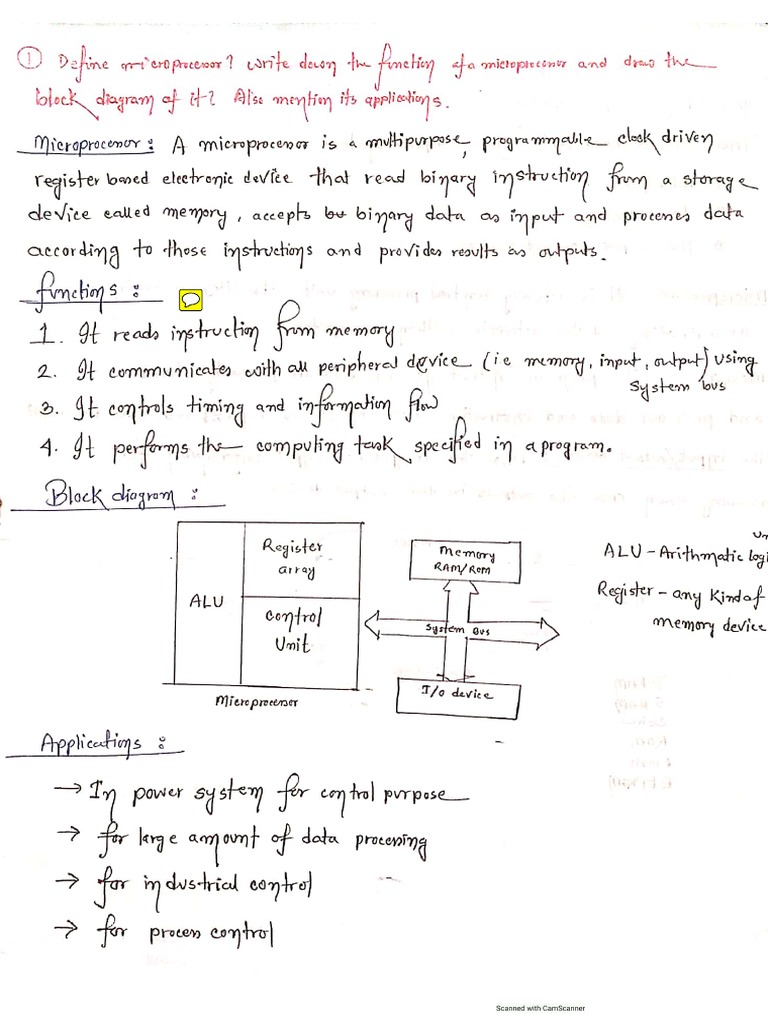 ① Define microprocessor? Write down the function of a microprocessor and draw the
block diagram of it? Also mention its applications.
Microprocessor: A microprocessor is a multipurpose, programmable clock driven
register based electronic device that read binary instruction from a storage
device called memory, accepts binary data as input and processes data
according to those instructions and provides results as outputs.
Functions:
1. It reads instruction from memory
2. It communicates with all peripheral device (i.e memory, input, output) using
System bus
3. It controls timing and information flow
4. It performs the computing task specified in a program.
Block diagram:
ALU
Register
array
Control
Unit
Microprocessor
Memory
RAM/ROM
System Bus
I/O device
ALU - Arithmatic logi
Register - any Kind of
memory device
Applications:
→ In power system for control purpose
→ for large amount of data processing
→ for industrial control
→ for process control
Scanned with CamScanner